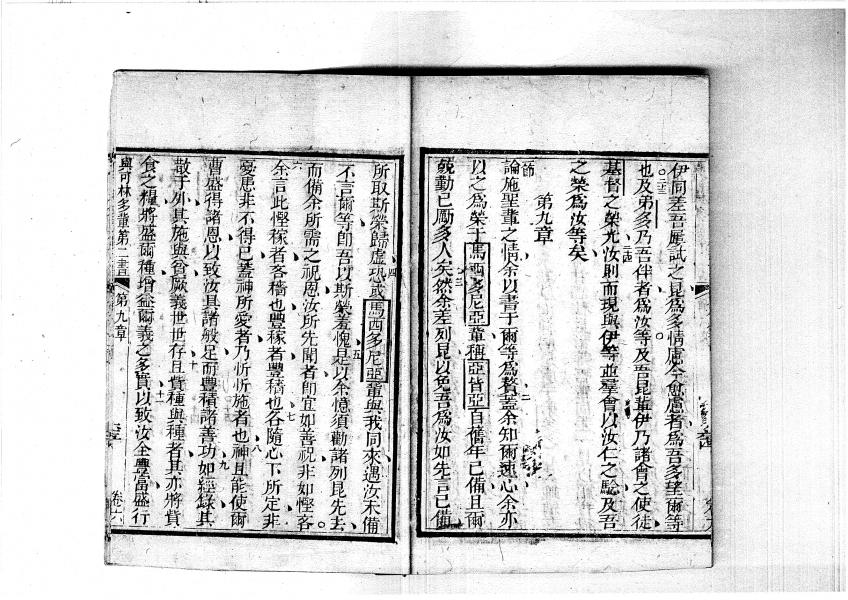 伊同差吾屢試之昆爲多情慮今愈慮者爲吾多望爾等
也及弟多乃吾伴者爲汝等及吾昆輩伊乃諸會之使徒
基督之榮光汝則而現與伊等並羣會以汝仁之驗及吾
之榮爲汝等矣
第九章
論施聖輩之情余以書于爾等爲贅蓋余知爾速心余亦
以之爲榮于馬西多尼亞輩稱亞皆亞自舊年已備且爾
兢勤已勵多人矣然余差列昆以免吾爲汝如先言已備
所取斯榮歸虛恐或馬西多尼亞輩與我同來遇汝未備
不言爾等卽吾以斯榮羞愧是以余憶須勸諸列昆先去
而備余所需之祝恩汝所先聞者卽宜如善祝非如慳吝
余言此慳稼者吝穡也豐稼者豐穡也各隨心下所定非
憂患非不得已蓋神所愛者乃忻忻施者也神且能使爾
曹盛得諸恩以致汝具諸般足而豐積諸善功如經錄其
散于外其施與貧厥義世世存且賚種與種者其亦將賚
食之糧將盛爾種增益爾義之多實以致汝全豐富盛行
與可林多輩第二書 第九章 卷六